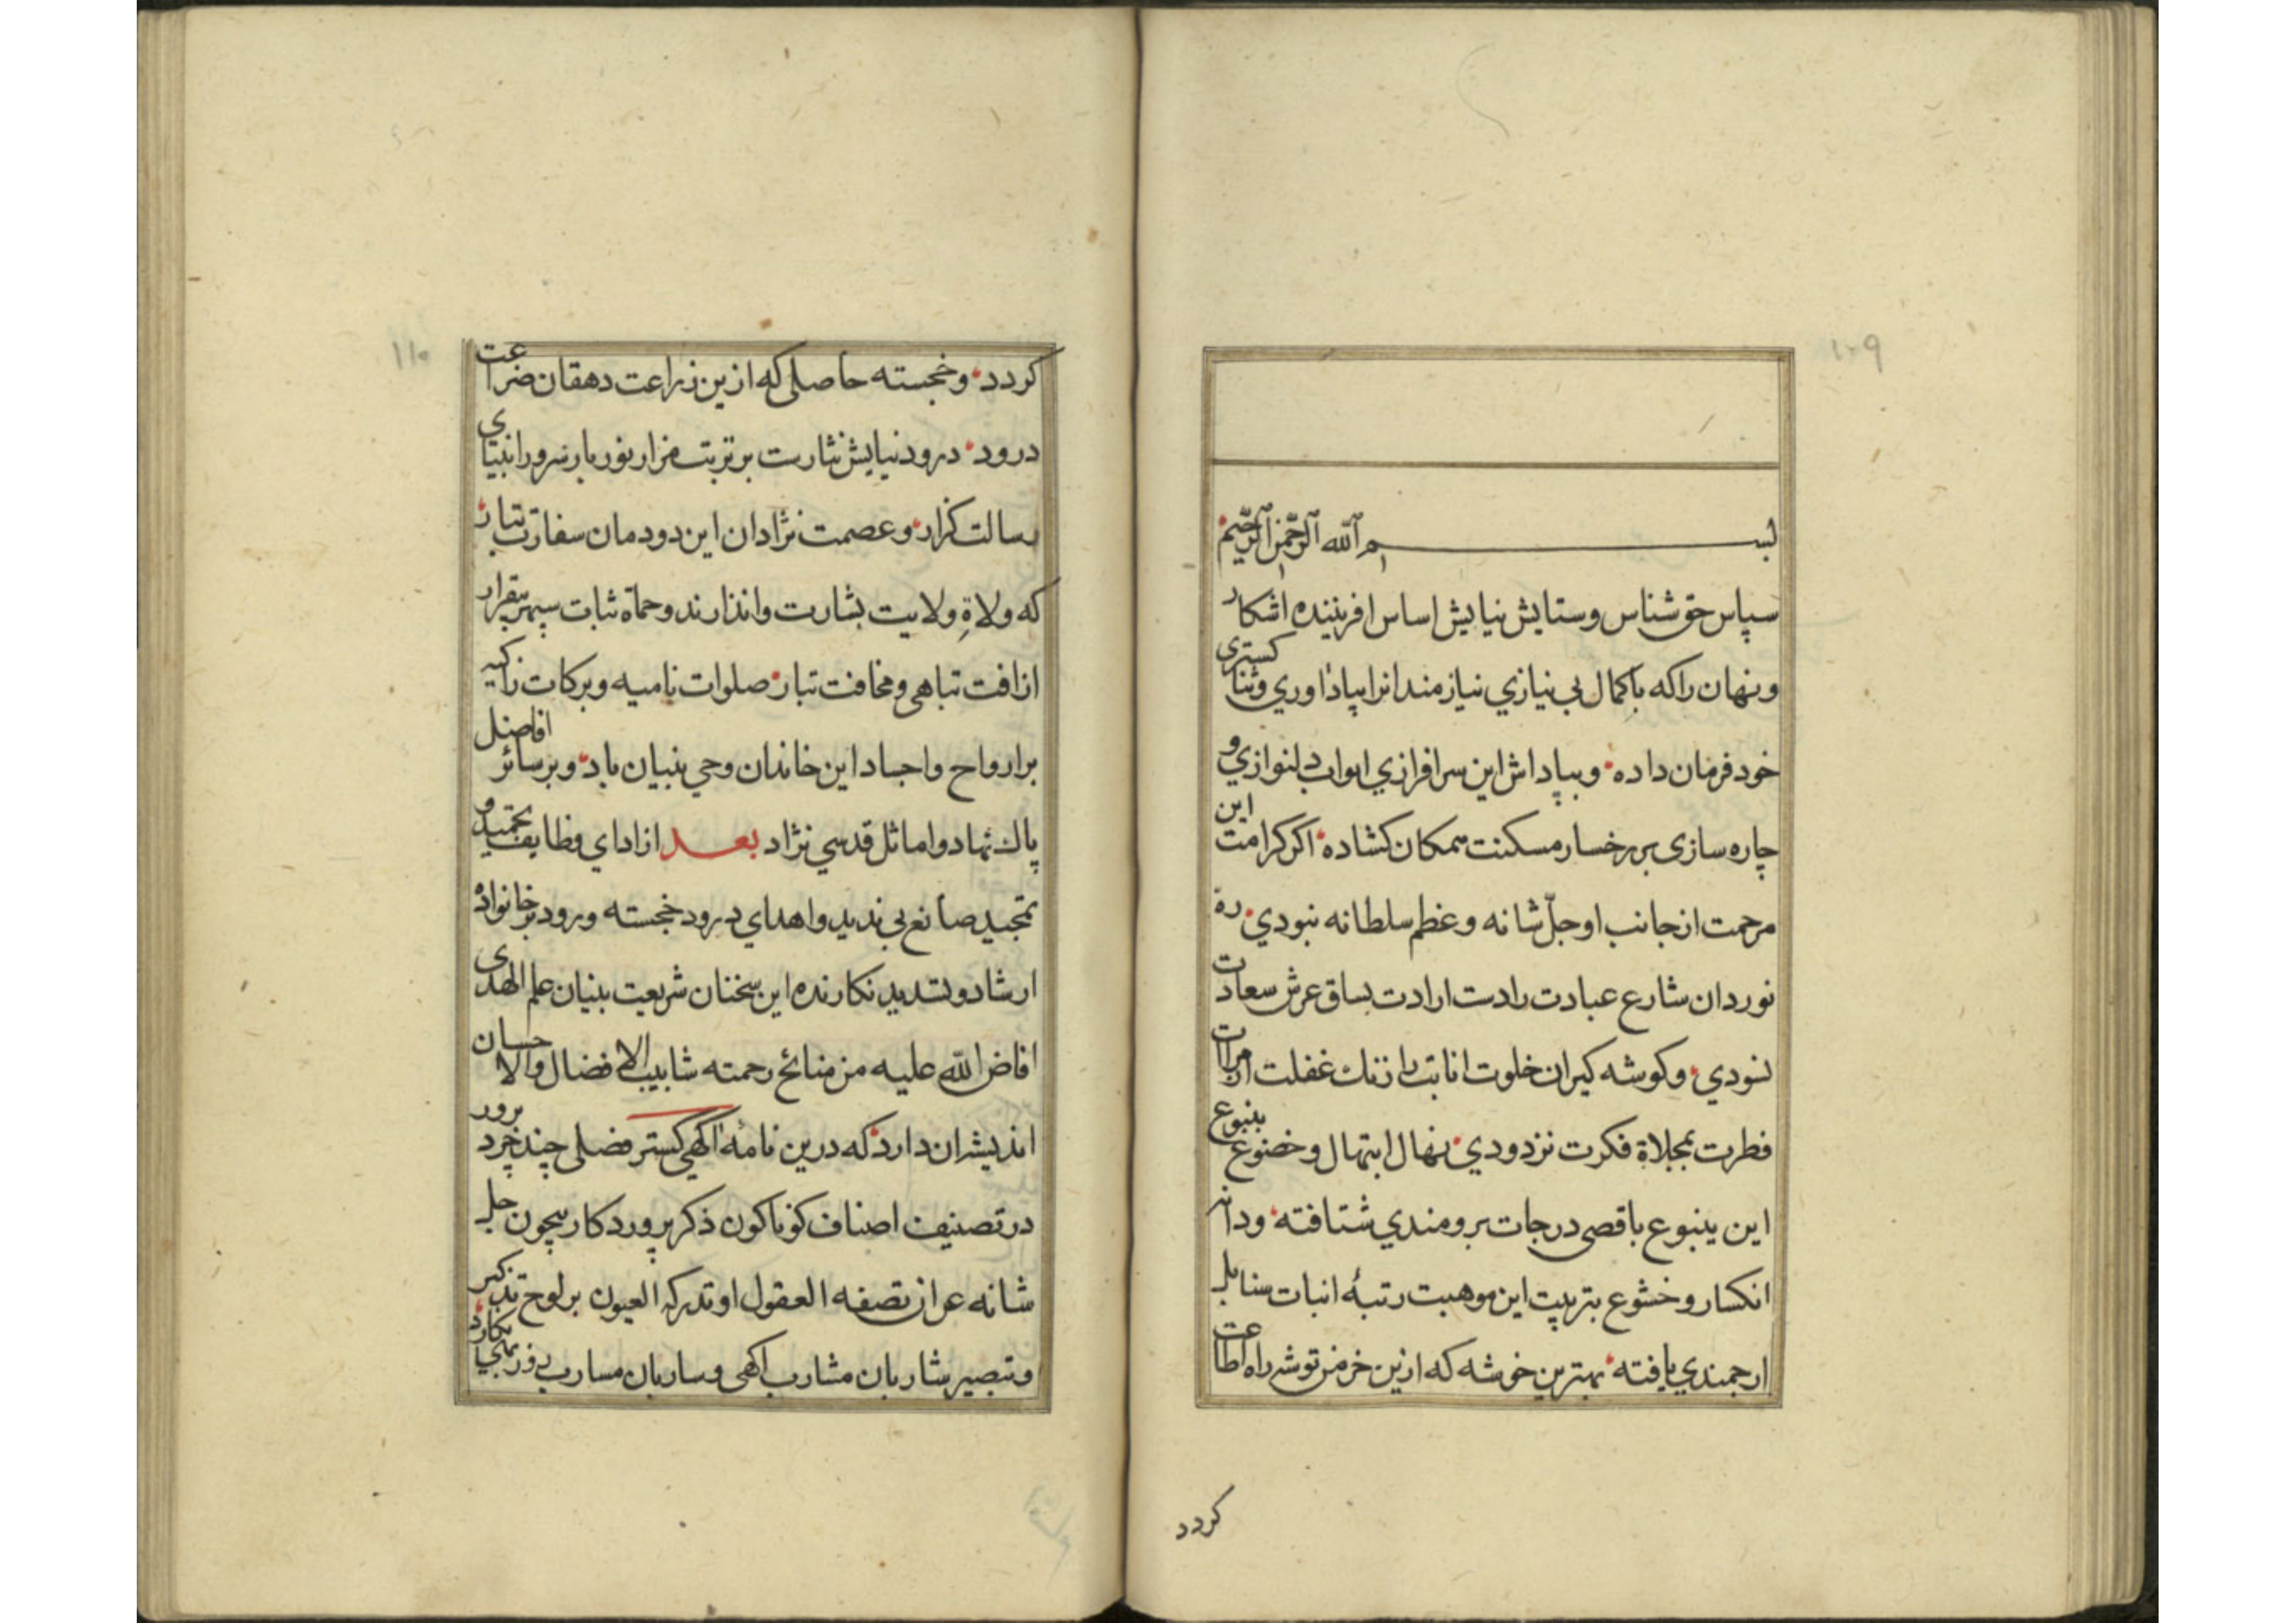 ۱۰۹
بسم الله الرحمن الرحیم
سپاس حق شناس و ستایش نیایش اساس افریننده اشکار
و نهان را که با کمال بی نیازی نیازمندانرا بیاد اوری و ثنا کستری
خود فرمان داده و بپاداش این سرافرازی ابواب دلنوازی و
چاره سازی بر رخسار مسکنت همکان کشاده اکر کرامت این
مرحمت از جانب او جلّ شانه و عظم سلطانه نبودی ره
نوردان شارع عبادت را دست ارادت بساق عرش سعادت
نسودی و کوشه کیران خلوت انابت را زنك غفلت از مرات
فطرت بمجلاة فکرت نزدودی نهال ابتهال و خضوع بینبوع
این ینبوع باقصی درجات برومندی شتافته و دانه
انکسار و خشوع بتربیت این موهبت رتبهٔ انبات سنابل
ارجمندی یافته بهترین خوشه که ازین خرمن توشه راه اطاعت
کردد
۱۱۰
کردد و خجسته حاصلی که ازین زراعت دهقان ضراعت
درود درود نیایش نثارست بر تربت مزار نور بار سرور انبیای
رسالت کزار و عصمت نژادان این دودمان سفارت تبار
که ولاةِ ولایت بشارت و انذارند و حماة ثبات سپهر بیقرار
از افت تباهی و مخافت تبار صلوات نامیه و برکات زاکیه
بر ارواح و اجساد این خاندان وحی بنیان باد و بر سائر افاضل
پاك نهاد و اماثل قدسی نژاد بعد از ادای وظایف تحمید و
تمجید صانع بی ندید و اهدای درود خجسته ورود بر خانواده
ارشاد و تسدید نکارنده این سخنان شریعت بنیان علم الهدی
افاض الله علیه من منائح رحمته شابیب الافضال والاحسان
اندیشه ان دارد که درین نامهٔ اکهی کستر فصلی چند خرد پرور
در تصنیف اصناف کوناکون ذکر پروردکار بیچون جل
شانه عن ان تصفه العقول او تدرکه العیون بر لوح تذکیر
و تبصیر شاربان مشارب اکهی و ساربان مسارب نکارد